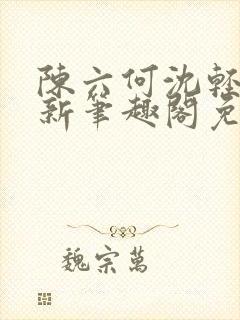 陳六何沈輕
新筆趣閣免
魏宗萬